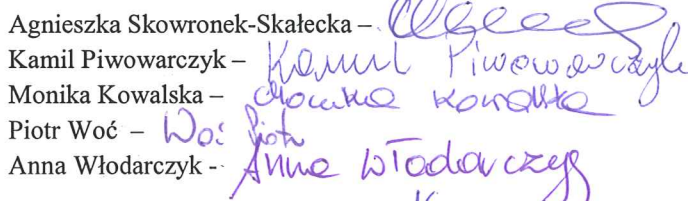 Agnieszka Skowronek-Skałecka –
Kamil Piwowarczyk – Kamil Piwowarczyk
Monika Kowalska – Monika Kowalska
Piotr Woć – Woć Piotr
Anna Włodarczyk - Anna Włodarczyk